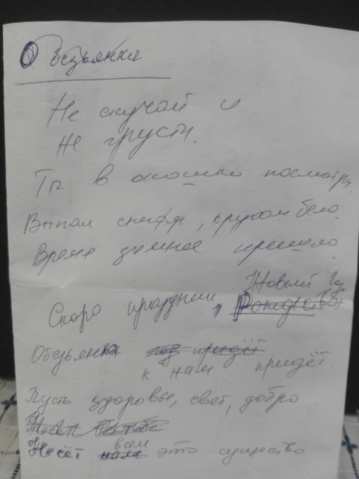 Обезьянка
Не скучай и
Не грусти.
Ты в окошко посмотри,
Выпал снежок, кругом бело.
Время зимнее пришло.
Новый год
Скоро праздник, Рождество
Обезьянка год придёт
к нам придёт.
Пусть здоровье, свет, добро
Несёт
Несёт вам нам это существо